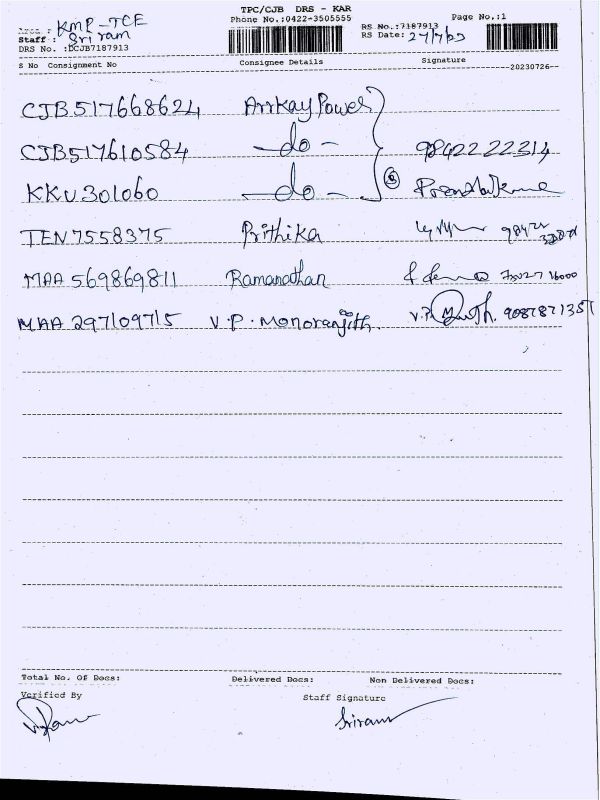 TPC/CJB DRS - KAR
Area : KMP-TCE Phone No.:0422-3505555 RS No.:7187913 Page No.:1
Staff : Sri ram RS Date: 27/7/23
DRS No. :DCJB7187913
S No Consignment No Consignee Details Signature --20230726--
CJB517668624 Arrkay Power
CJB517610584 -do- 9842222314
KKU301060 -do-
TEN7558375 Prithika
MAA 569869811 Ramanathan
MAA 297109715 V.P. Monoranjith. V.P. 9087871357
Total No. Of Docs: Delivered Docs: Non Delivered Docs:
Verified By Staff Signature
Sriram